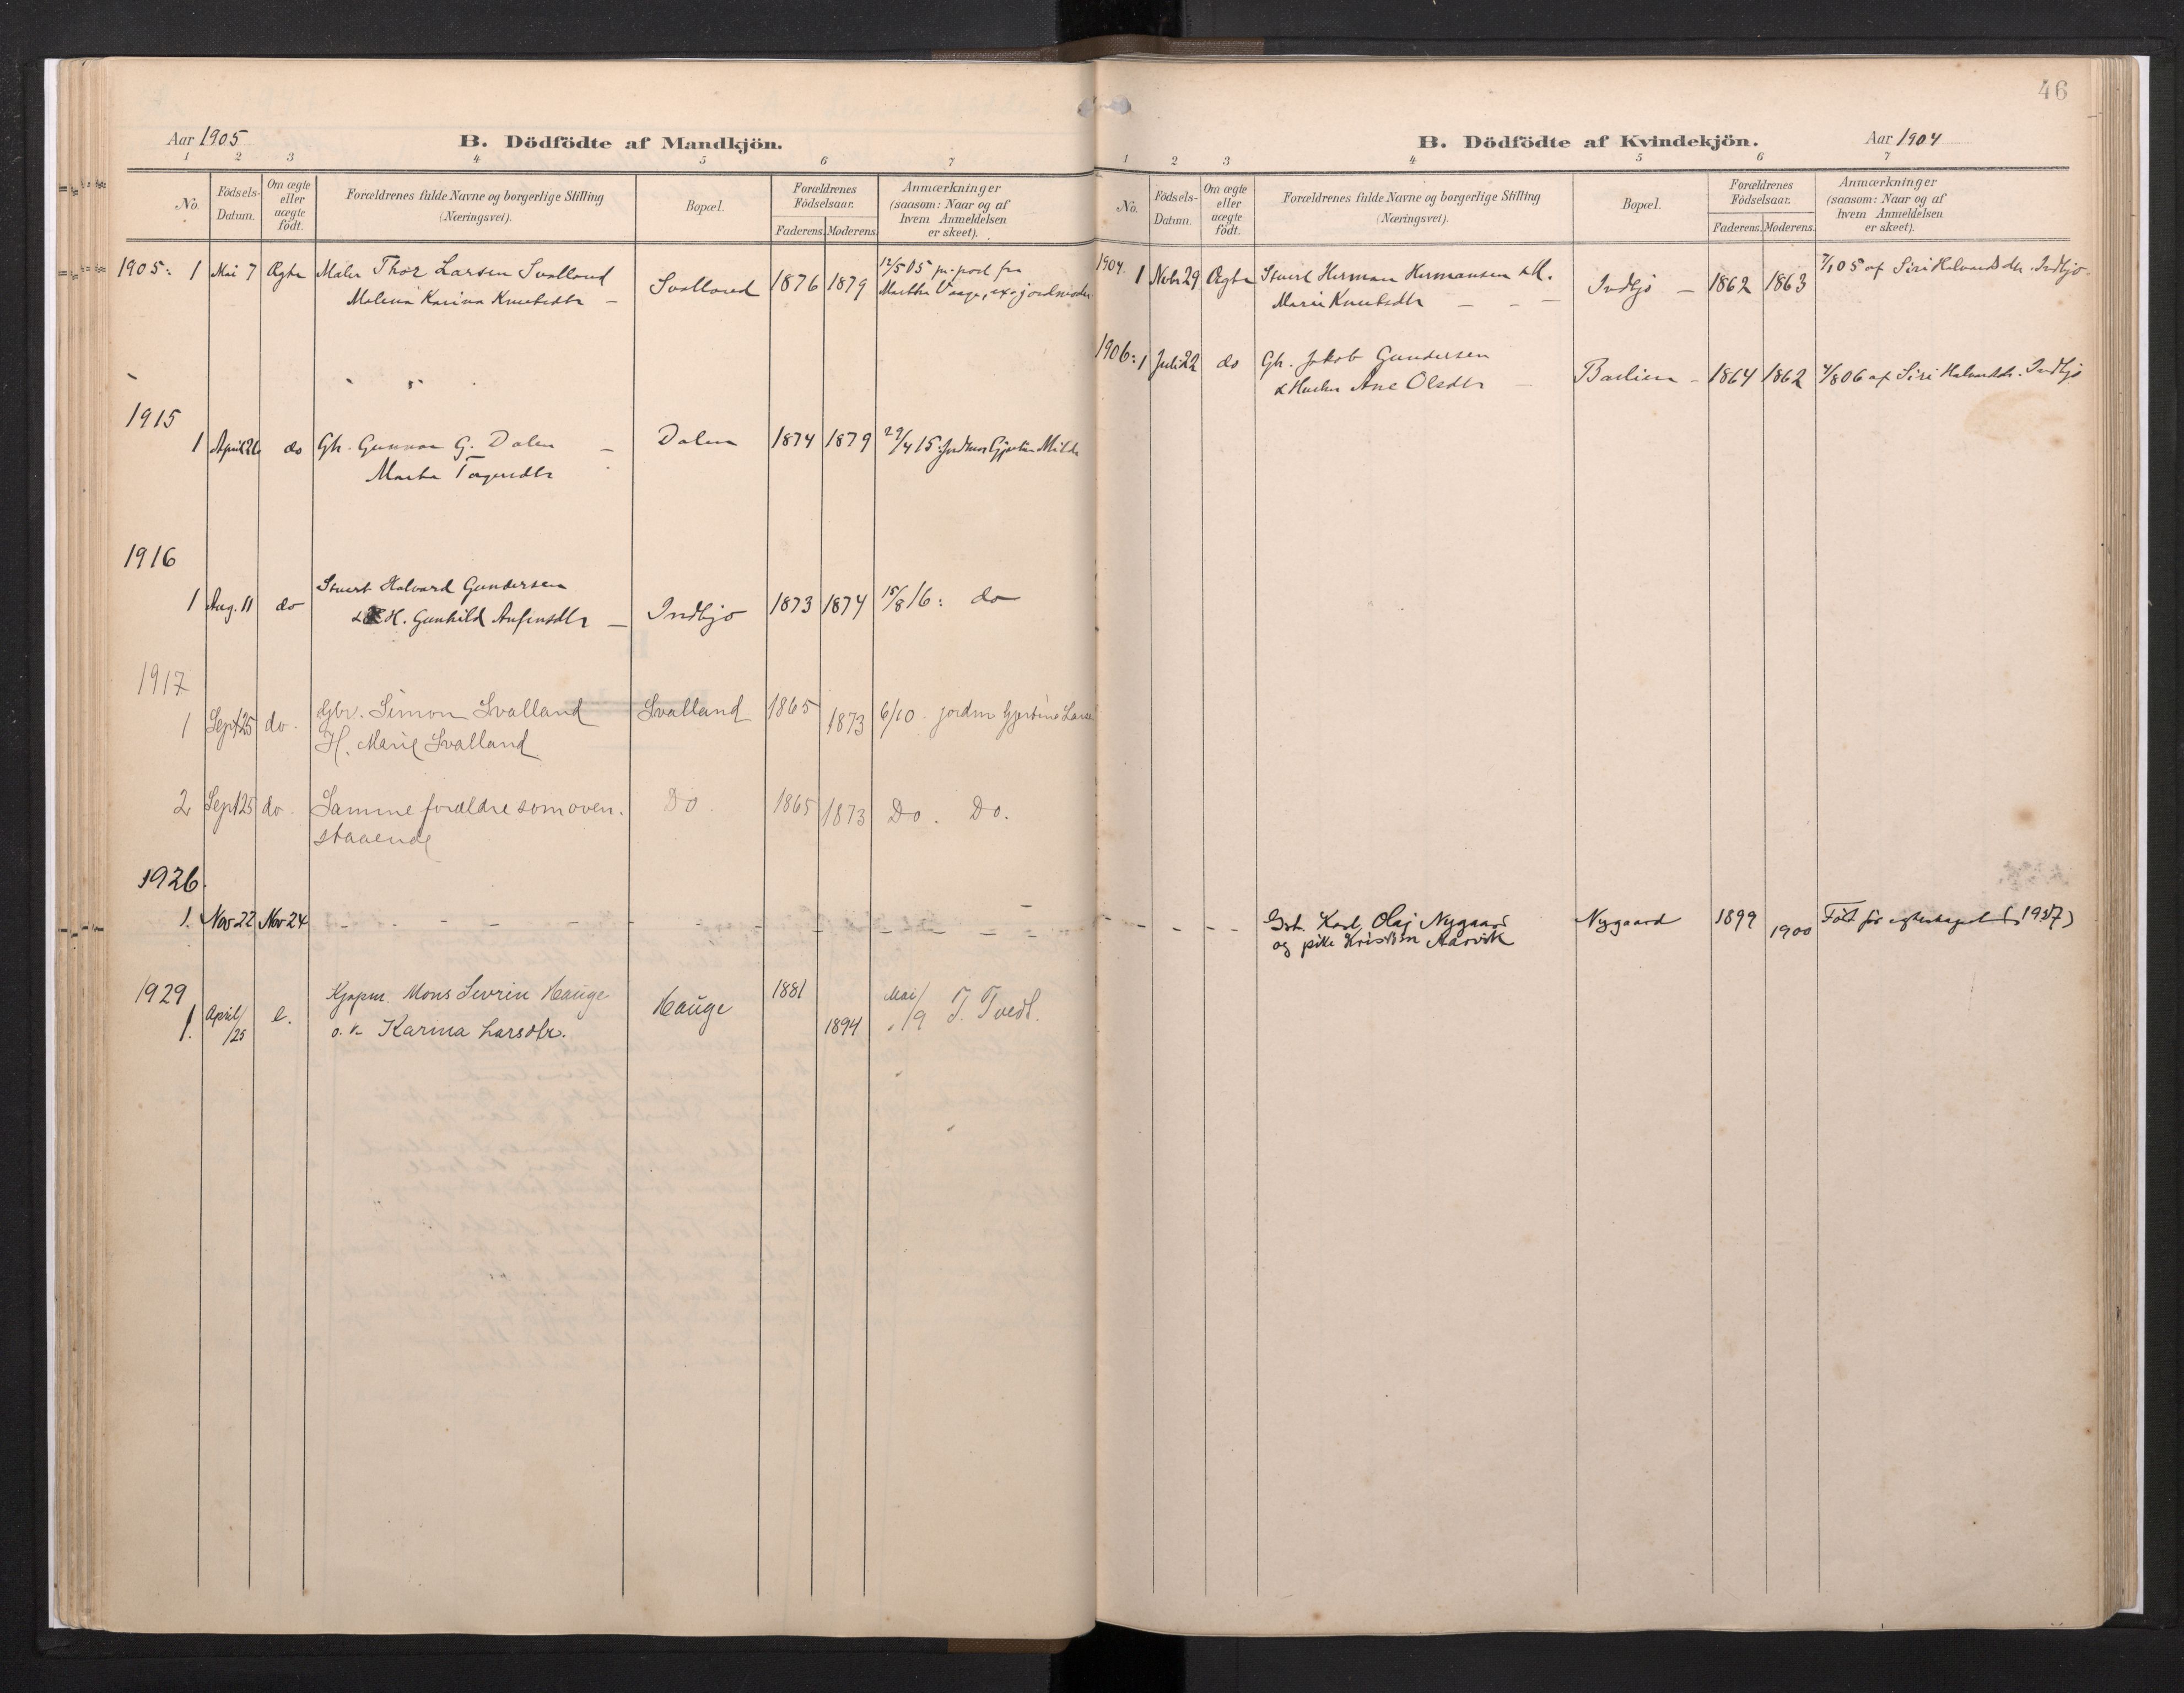 46
Aar 1905
B. Dödfödte af Mandkjön.
1 2 3 4 5 6 7
No.
Födsels-Datum.
Om ægte eller uægte födt.
Forældrenes fulde Navne og borgerlige Stilling
(Næringsvei).
Bopæl.
Forældrenes Födselsaar.
Faderens. Moderens.
Anmærkninger
(saasom: Naar og af
hvem Anmeldelsen
er skeet).
1905: 1 Mai 7 Ægte Maler Thor Larsen Svalland Svalland 1876 1879 12/5 05 pr. post fra
Malena Karina Knutsdtr Marthe Vaage, exa. jordmoder
1915
1 April 26 do Gbr. Gunnar G. Dalen Dalen 1874 1879 29/4 15: Jordmor Gjertine Milde
Marta Torgersdtr
1916
1 Aug. 11 do Stuert Halvard Gundersen Indbjo 1873 1874 15/8 16: do
& H. Gunhild Anfinsdtr
1917
1 Sept 25 do. Gbr. Simon Svalland Svalland 1865 1873 6/10 jordm Gjertine Larsen
H. Marie Svalland
2 Sept 25 do. Samme forældre som oven. Do 1865 1873 Do. Do.
staaende
1926.
1. Nov 22 Nov 24 - - - - -
1929
1. April/25 e. Kjøpm. Mons Sevrin Hauge Hauge 1881 1894 Mai/9 J. Tvedt.
o. h. Karina Larsdtr.
B. Dödfödte af Kvindekjön.
Aar 1904
1 2 3 4 5 6 7
No.
Födsels-Datum.
Om ægte eller uægte födt.
Forældrenes fulde Navne og borgerlige Stilling
(Næringsvei).
Bopæl.
Forældrenes Födselsaar.
Faderens. Moderens.
Anmærkninger
(saasom: Naar og af
hvem Anmeldelsen
er skeet).
1904. 1 Novbr 29 Ægte Stuert Herman Hermansen & H. Indbjo 1862 1863 7/1 05 af Siri Halvardsdtr. Indbjo
Marie Knutsdtr
1906: 1 Juli 22 do Gbr. Jakob Gundersen Baelien 1864 1862 4/8 06 af Siri Halvardsdtr. Indbjo
& Hustru Ane Olsdtr
Gbr. Karl Olaj Nygaard Nygaard 1899 1900 Født før egteskapet (1927)
og pike Kristin Aarvik